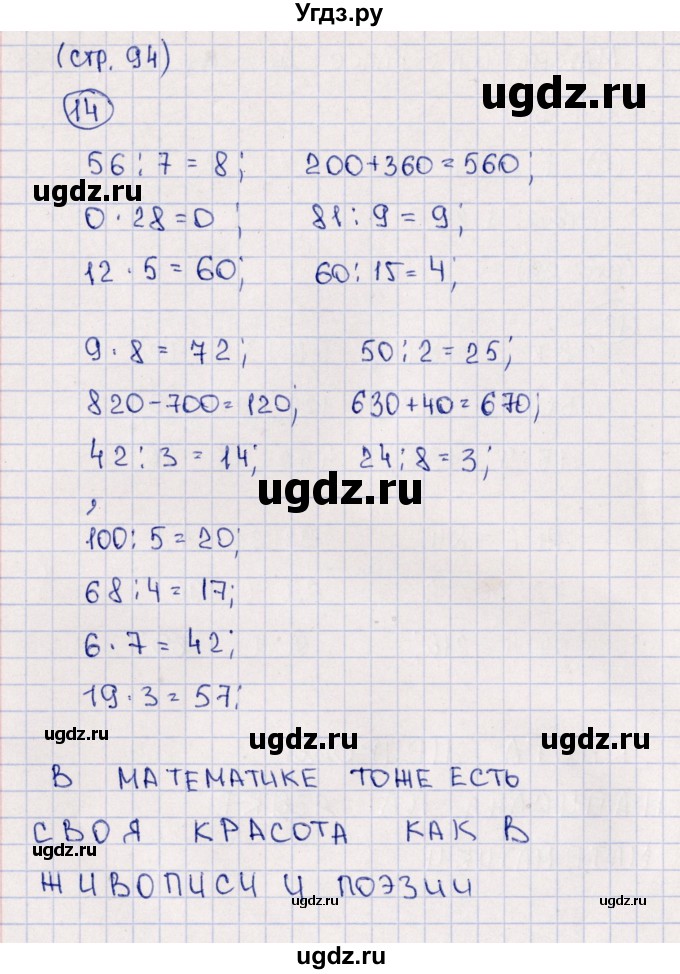 Угдз.ру
(стр. 94)
ugdz.ru
14
56 : 7 = 8; 200+360=560;
ugdz.ru
0 · 28=0 ; 81 : 9 = 9;
12 · 5 = 60; 60 : 15= 4;
9 · 8 = 72; 50 : 2 = 25;
820-700=120; 630+40=670;
42 : 3 = 14; 24 : 8 = 3;
ugdz.ru
,
100 : 5 = 20;
68 : 4 = 17;
6 · 7 = 42;
19 · 3 = 57;
ugdz.ru ugdz.ru ugdz.ru
В МАТЕМАТИКЕ ТОЖЕ ЕСТЬ
СВОЯ КРАСОТА КАК В
ugdz.ru
ЖИВОПИСИ И ПОЭЗИИ
ugdz.ru ugdz.ru
ugdz.ru